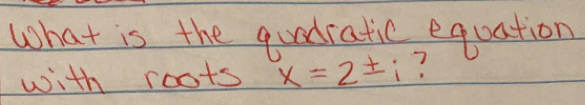 What is the quadratic equation
with roots x = 2 ± i?